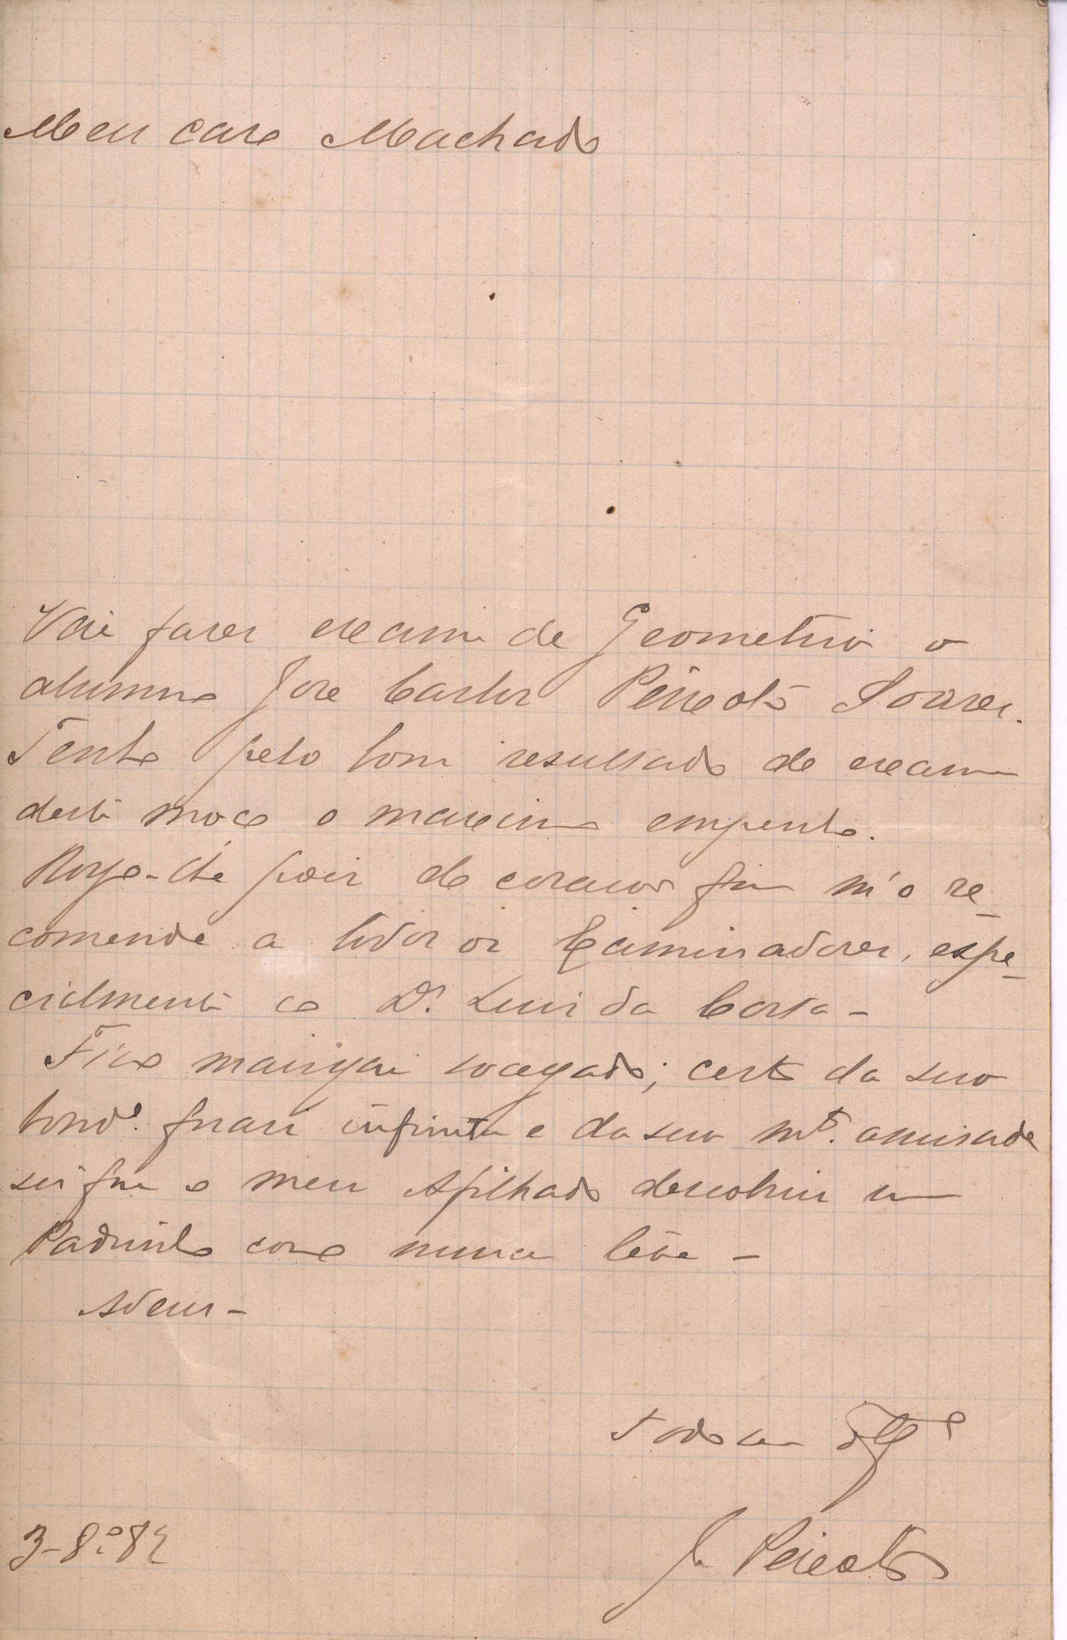 Meu caro Machado
Vai fazer exame de Geometria o
alumno José Carlos Peixoto Soares.
Tenho pelo bom resultado do exame
deste moço o maximo empenho.
Rogo-lhe pois de coração que m'o re-
comende a todos os Examinadores, espe-
cialmente ao Dr. Luis da Costa -
Fico mais que socegado; certo da sua
bond.e quasi infinita e da sua m.ta amisade
sei que o meu Afilhado descobriu um
Padrinho como nunca teve -
Adeus -
Todo seu
J. Peixoto
3-8.º-82